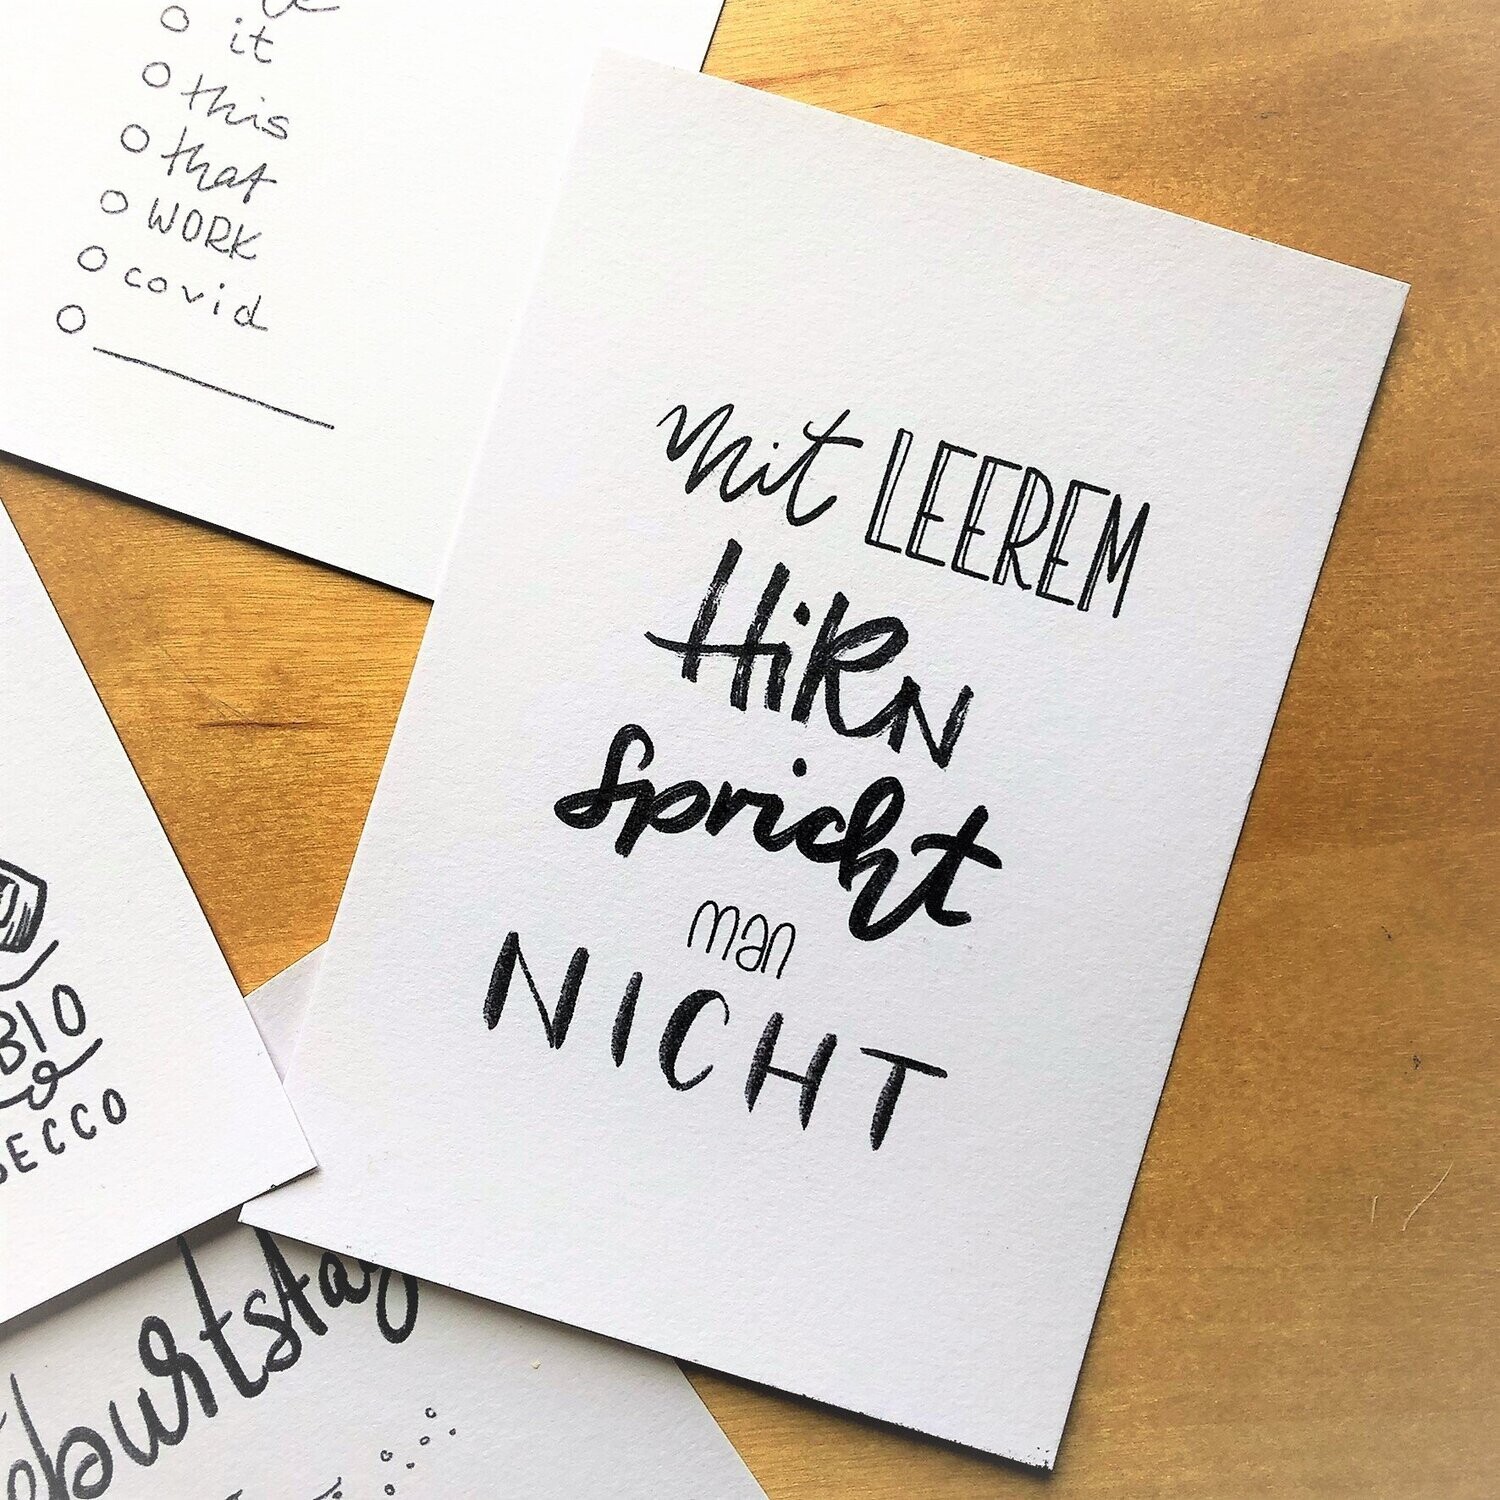 it
this
that
WORK
covid
mit LEEREM
HiRN
spricht
man
NICHT
BIO
SECCO